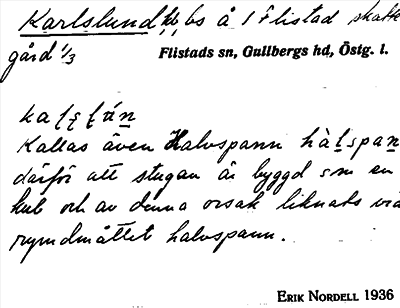 Karlslund, hl, bs å 1 Flistad skatte
gård 1/3
Flistads sn, Gullbergs hd, Östg. l.
Kallas även Halvspann
därför att stugan är byggd sm en
kub och av denna orsak liknats vid
rymdmåttet halvspann.
ERIK NORDELL 1936